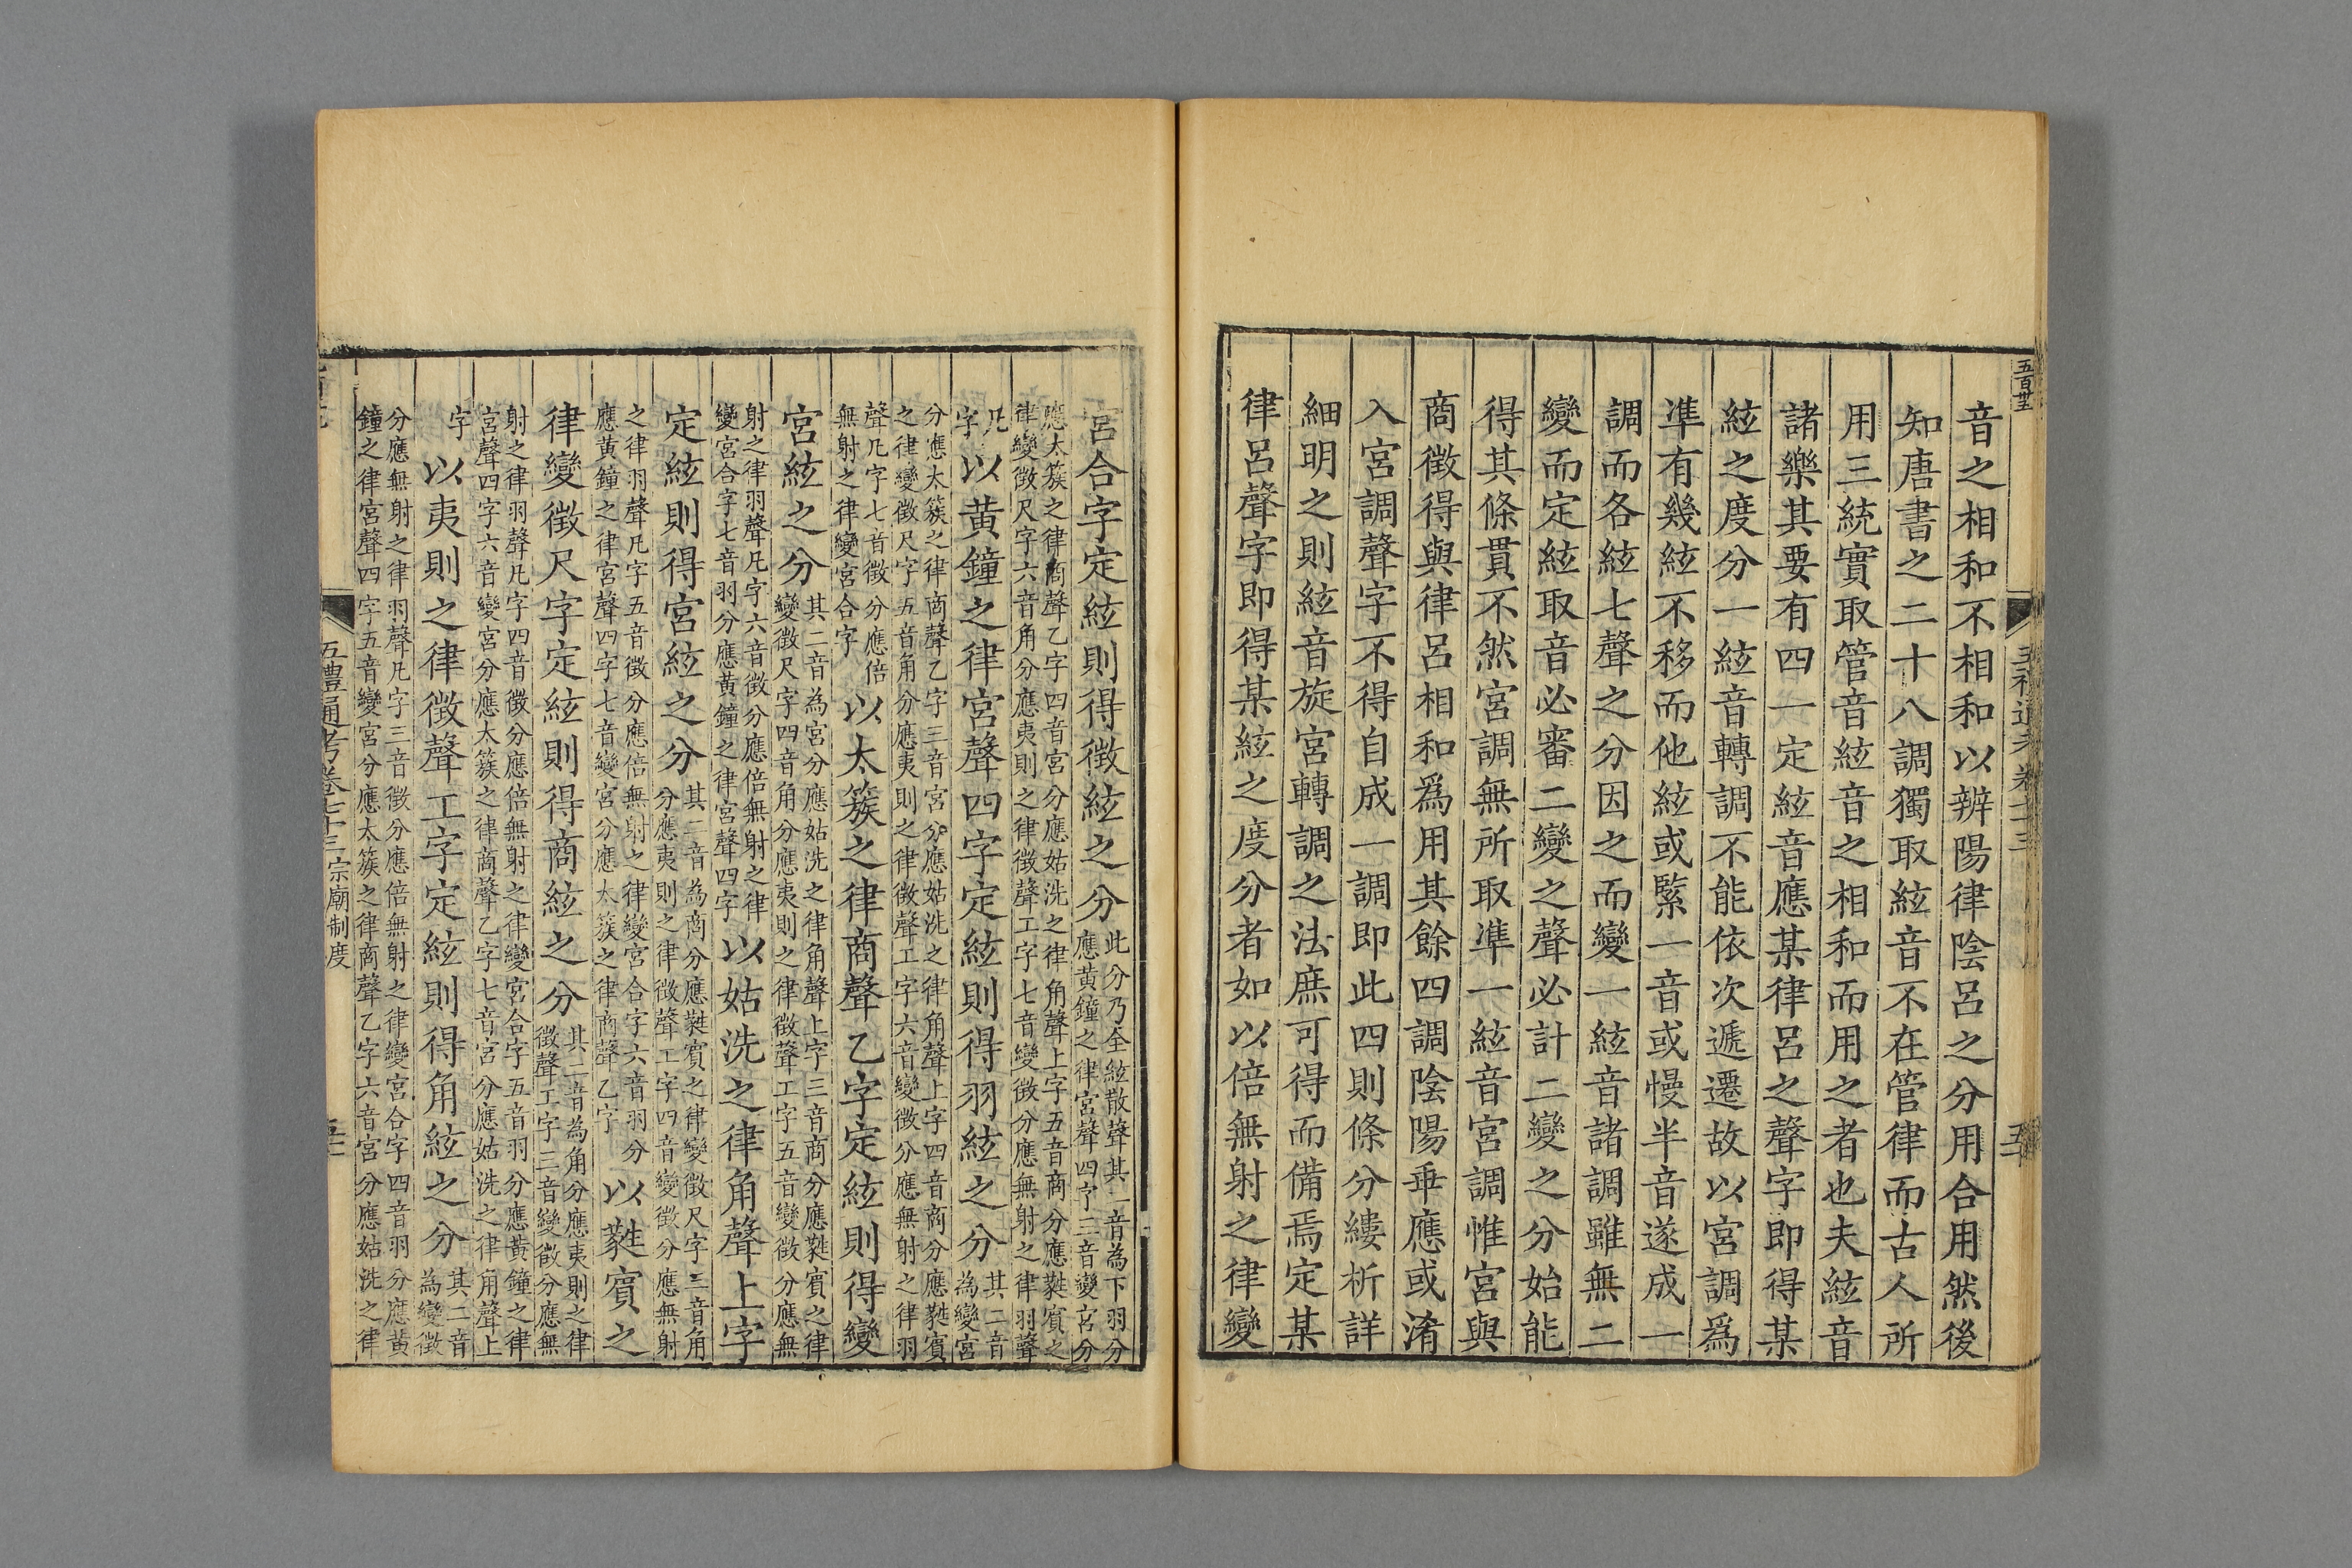 音之相和不相和以辨陽律陰呂之分用合用然後
知唐書之二十八調獨取絃音不在管律而古人所
用三統實取管音絃音之相和而用之者也夫絃音
諸樂其要有四一定絃音應某律呂之聲字即得某
絃之度分一絃音轉調不能依次遞遷故以宮調爲
準有幾絃不移而他絃或緊一音或慢半音遂成一
調而各絃七聲之分因之而變一絃音諸調雖無二
變而定絃取音必審二變之聲必計二變之分始能
得其條貫不然宮調無所取準一絃音宮調惟宮與
商徵得與律呂相和爲用其餘四調陰陽乖應或淆
入宮調聲字不得自成一調即此四則條分縷析詳
細明之則絃音旋宮轉調之法庶可得而備焉定某
律呂聲字即得某絃之度分者如以倍無射之律變
宮合字定絃則得徵絃之分此分乃全絃散聲其二音為下羽分
應黃鐘之律宮聲四字三音變宮分
應太簇之律商聲乙字四音宮分應姑洗之律角聲上字五音商分應蕤賓之
律變徵尺字六音角分應夷則之律徵聲工字七音變徵分應無射之律羽聲
凡
字以黃鐘之律宮聲四字定絃則得羽絃之分其二音
為變宮
分應太簇之律商聲乙字三音宮分應姑洗之律角聲上字四音商分應蕤賓
之律變徵尺字五音角分應夷則之律徵聲工字六音變徵分應無射之律羽
聲凡字七音徵分應倍
無射之律變宮合字以太簇之律商聲乙字定絃則得變
宮絃之分其二音為宮分應姑洗之律角聲上字三音商分應蕤賓之律
變徵尺字四音角分應夷則之律徵聲工字五音變徵分應無
射之律羽聲凡字六音徵分應倍無射之律
變宮合字七音羽分應黃鐘之律宮聲四字以姑洗之律角聲上字
定絃則得宮絃之分其二音為商分應蕤賓之律變徵尺字三音角
分應夷則之律徵聲工字四音變徵分應無射
之律羽聲凡字五音徵分應倍無射之律變宮合字六音羽分
應黃鐘之律宮聲四字七音變宮分應太簇之律商聲乙字以蕤賓之
律變徵尺字定絃則得商絃之分其二音為角分應夷則之律
徵聲工字三音變徵分應無
射之律羽聲凡字四音徵分應倍無射之律變宮合字五音羽分應黃鐘之律
宮聲四字六音變宮分應太簇之律商聲乙字七音宮分應姑洗之律角聲上
字以夷則之律徵聲工字定絃則得角絃之分其二音
為變徵
分應無射之律羽聲凡字三音徵分應倍無射之律變宮合字四音羽分應黃
鐘之律宮聲四字五音變宮分應太簇之律商聲乙字六音宮分應姑洗之律
五禮通考卷七十三宗廟制度